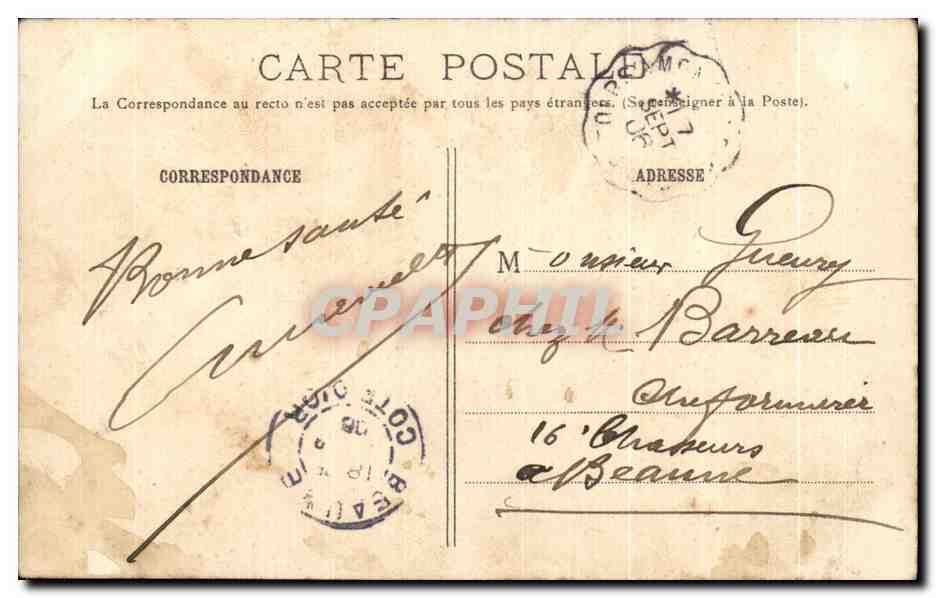 CARTE POSTALE
La Correspondance au recto n'est pas acceptée par tous les pays étrangers. (Se renseigner à la Poste).
CORRESPONDANCE
ADRESSE
17
SEPT
06
Bonne santé
Monsieur Gueury
chez Mr Barreau
16e Chasseurs
a Beaune
BEAUNE
COTE D'OR
18
06
CPAPHIL